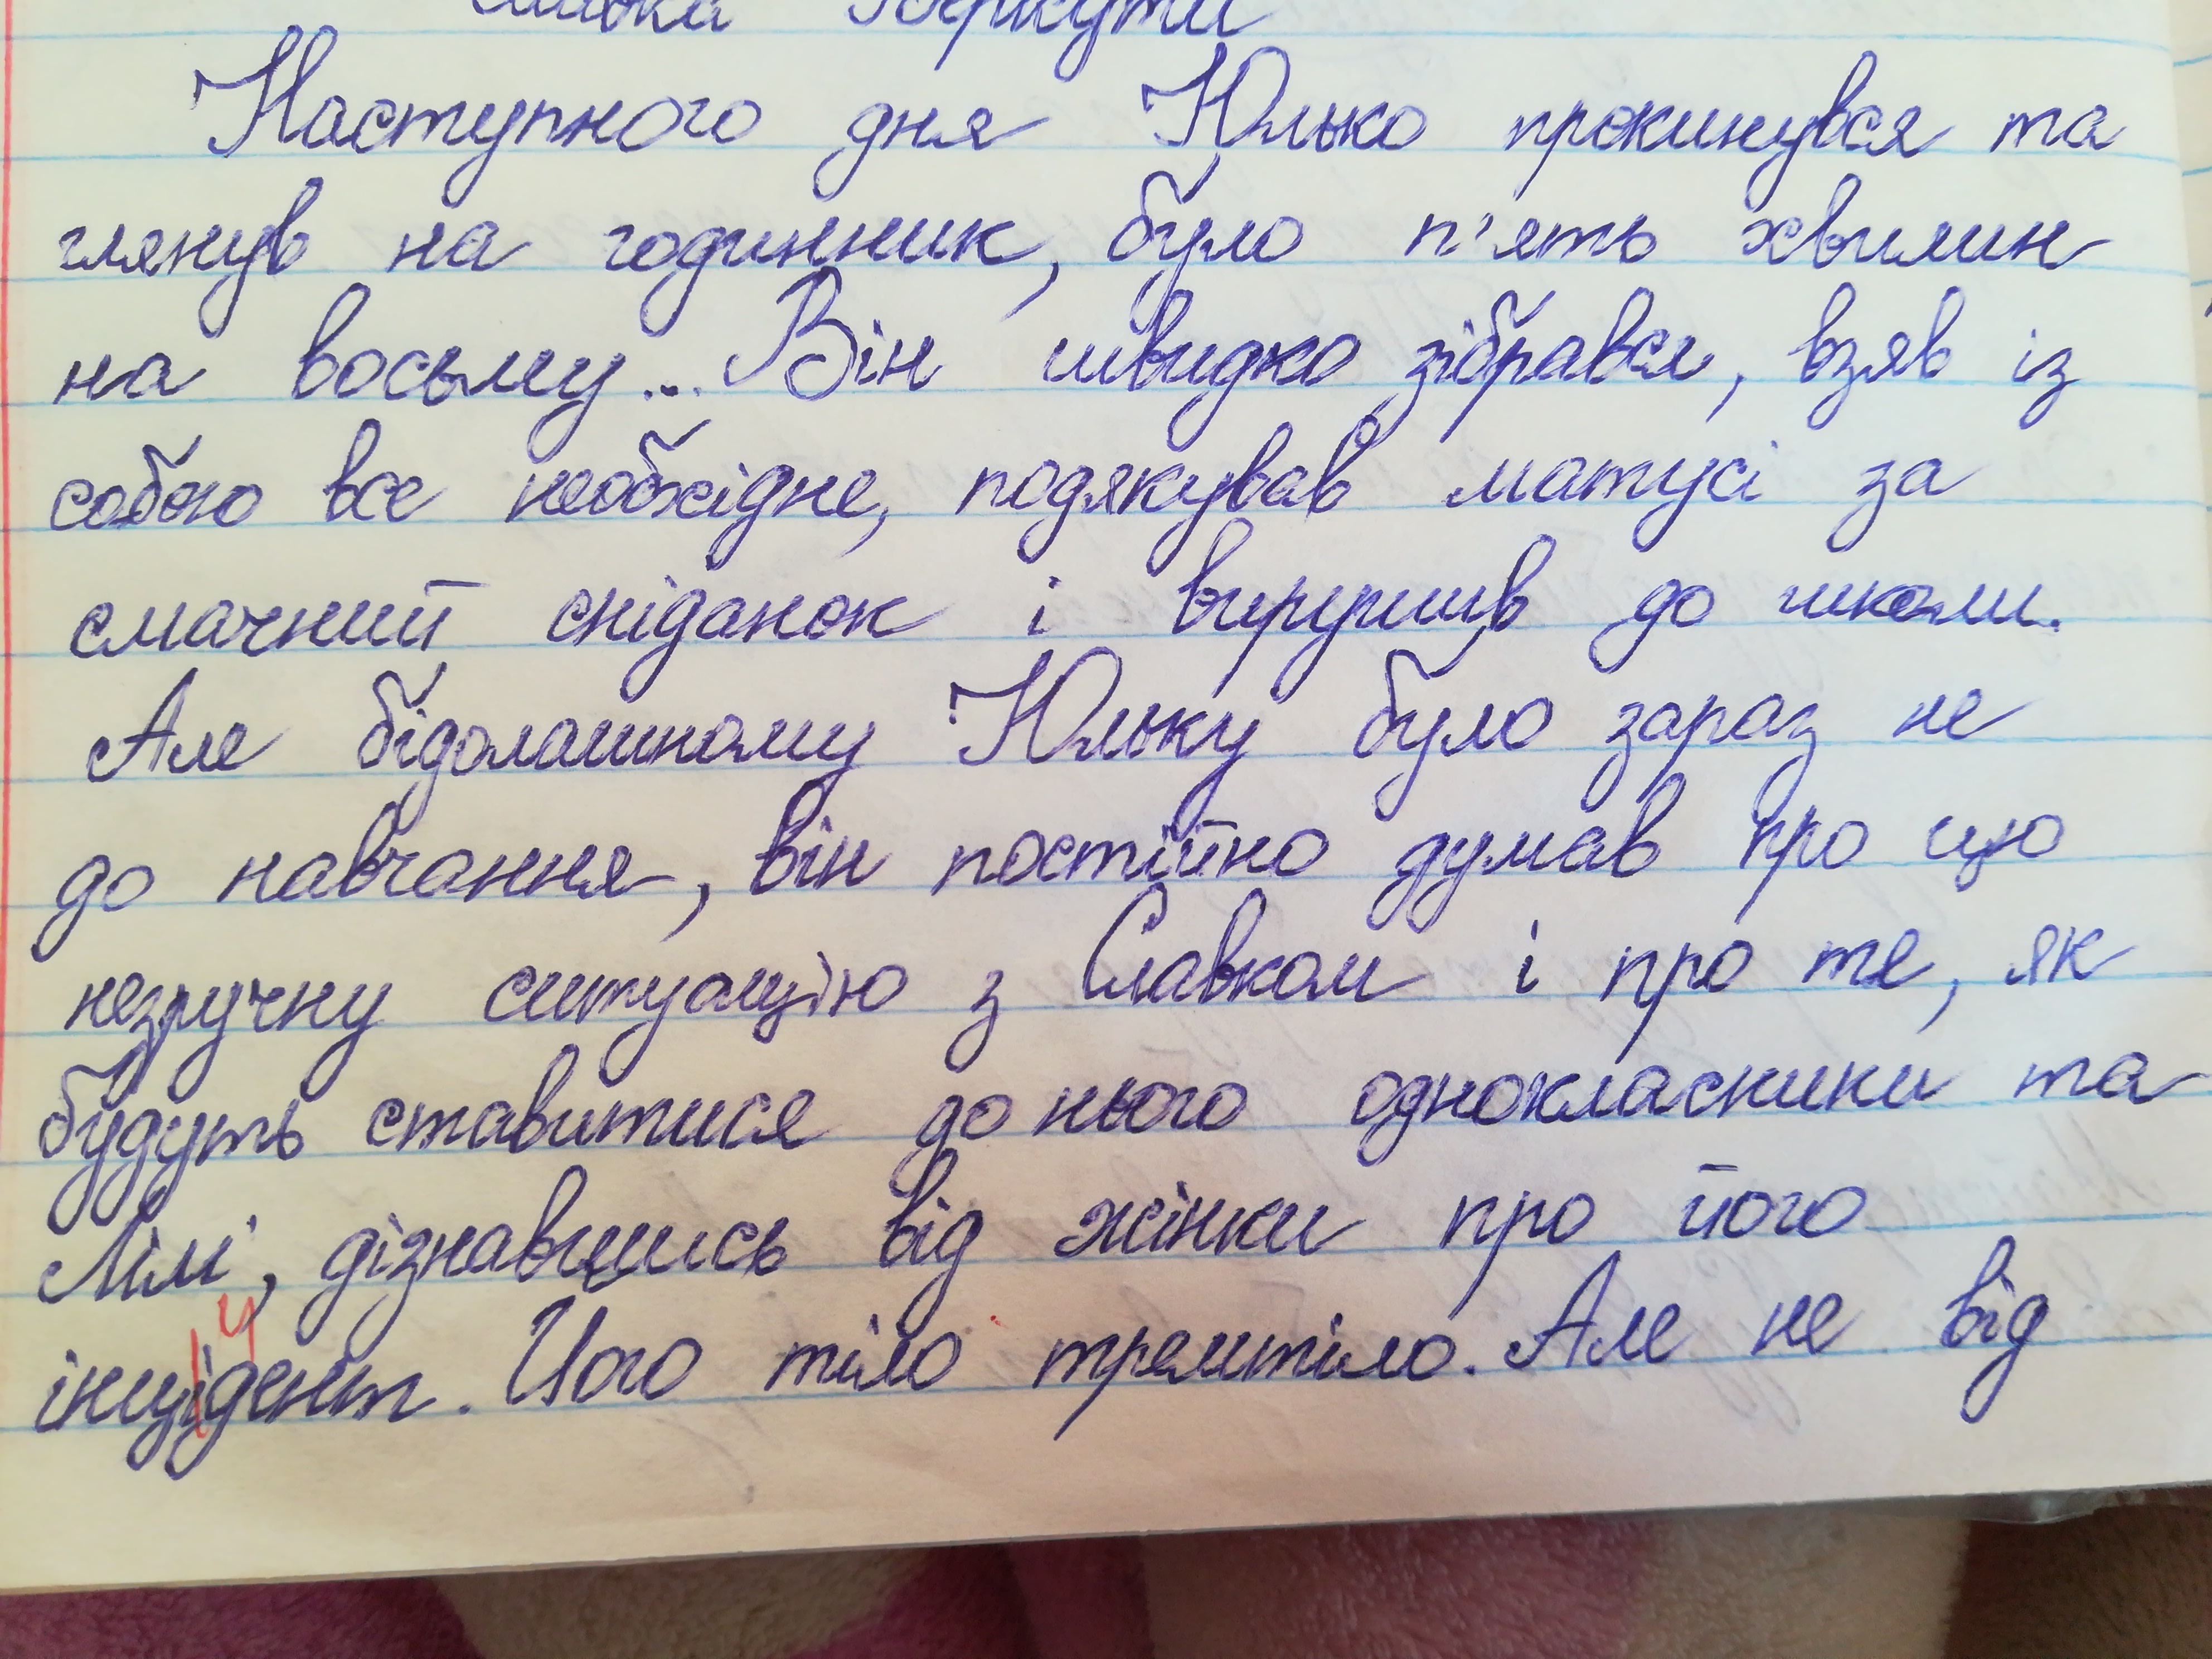 Наступного дня Юлько прокинувся та
глянув на годинник, було п'ять хвилин
на восьму... Він швидко зібрався, взяв із
собою все необхідне, подякував матусі за
смачний сніданок і вирушив до школи.
Але бідолашному Юльку було зараз не
до навчання, він постійно думав про цю
незручну ситуацію з Славком і про те, як
будуть ставитися до нього однокласники та
Лілі, дізнавшись від жінки про його
и
інцідент. Його тіло тремтіло. Але не від